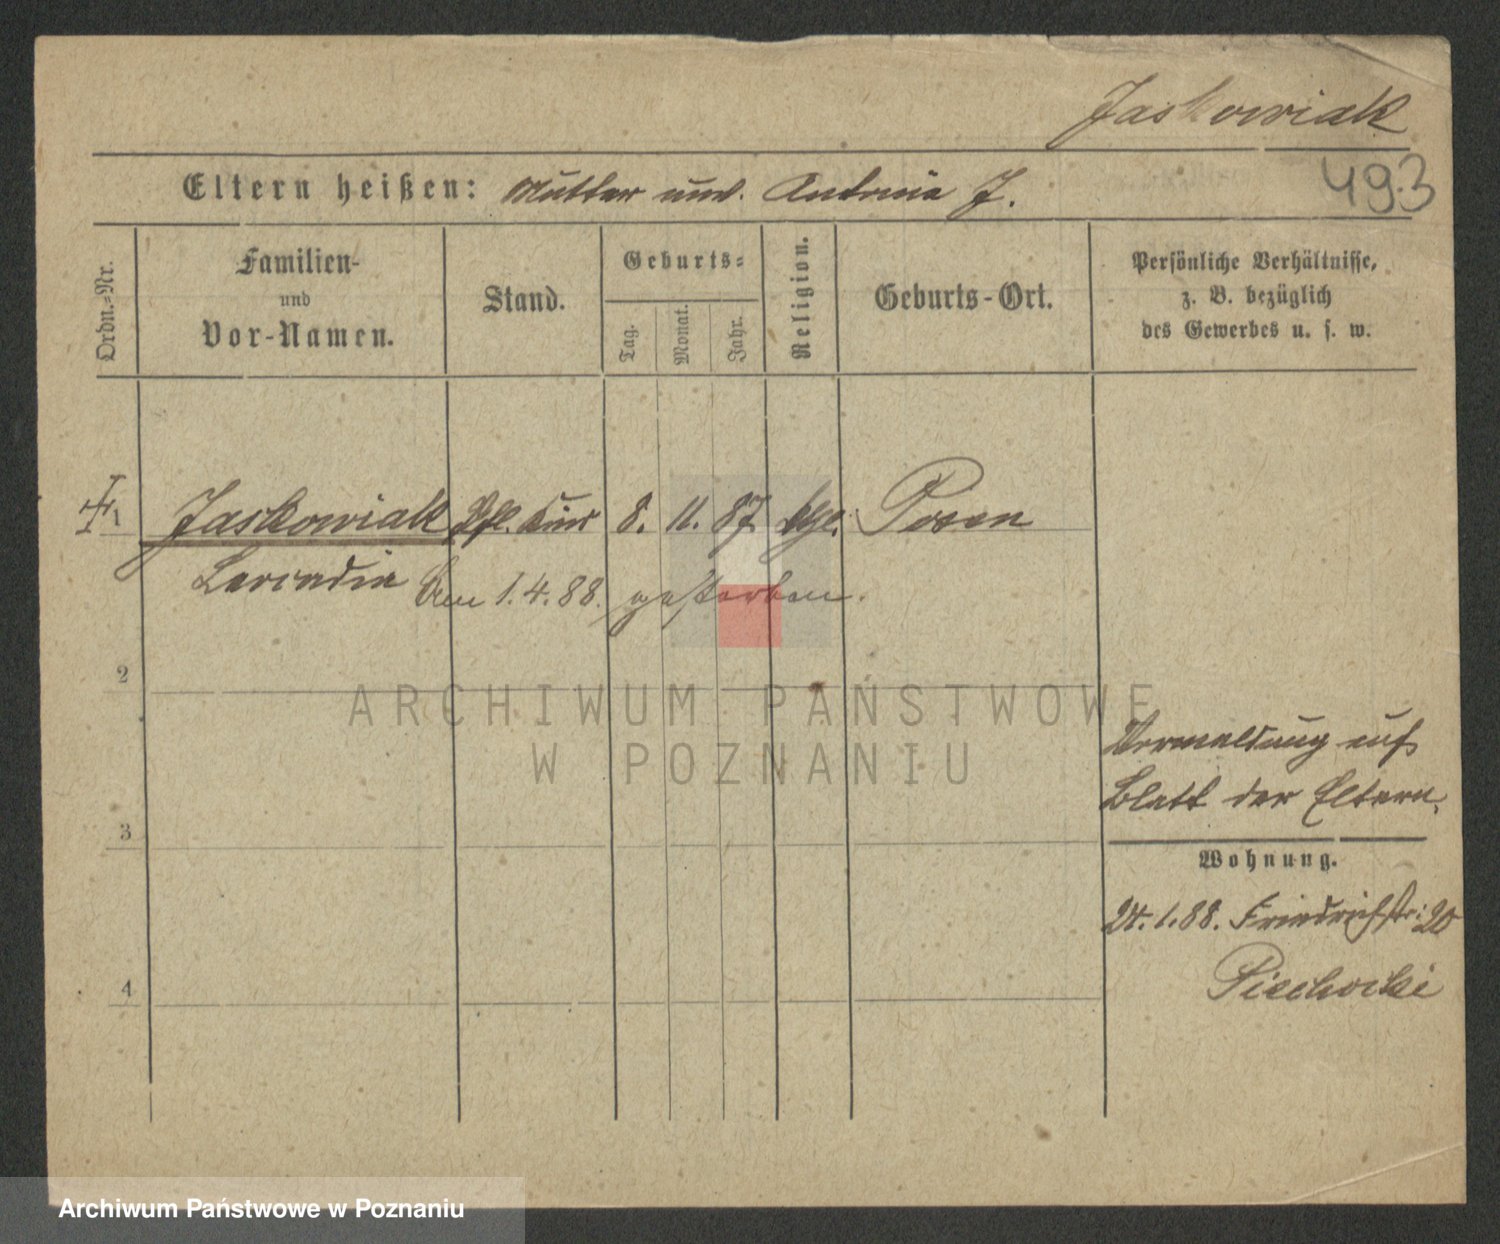 Jaskowiak
493
Eltern heißen: Mutter unv. Antonie J.
Ordn.-Nr.
Familien-
und
Vor-Namen.
Stand.
Geburts-
Tag.
Monat.
Jahr.
Religion.
Geburts-Ort.
Persönliche Verhältnisse,
z. B. bezüglich
des Gewerbes u. s. w.
1 Jaskowiak Pfl. Kind 8. 11. 87 kgl. Posen
Am 1.4.88. gestorben.
2
ARCHIWUM PAŃSTWOWE
W POZNANIU
Vermeldung aufs
Blatt der Eltern.
3
Wohnung.
24.1.88. Friedrichstr: 20
Piechocki
4
Archiwum Państwowe w Poznaniu